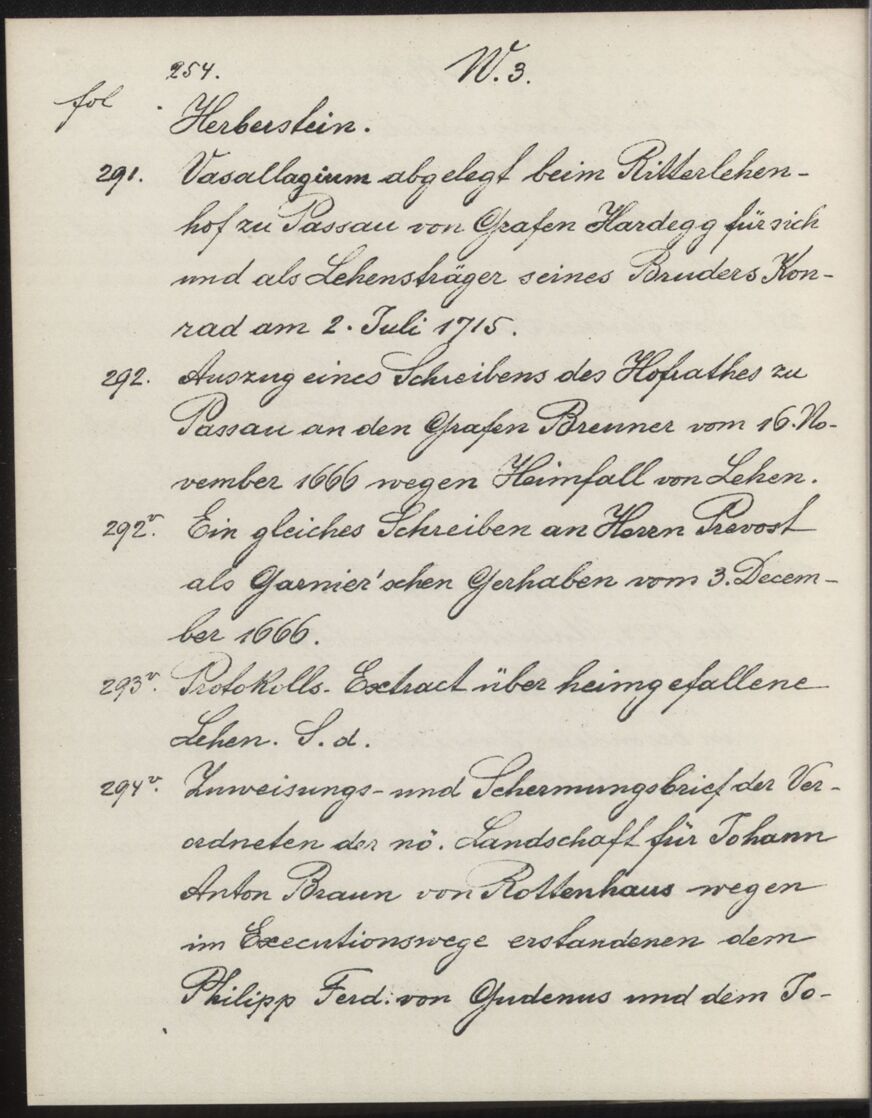 254. W. 3.
fol
Herberstein.
291. Vasallagium abgelegt beim Ritterlehen-
hof zu Passau von Grafen Hardegg für sich
und als Lehensträger seines Bruders Kon-
rad am 2. Juli 1715.
292. Auszug eines Schreibens des Hofrathes zu
Passau an den Grafen Breuner vom 16. No-
vember 1666 wegen Heimfall von Lehen.
292v. Ein gleiches Schreiben an Herrn Prevost
als Garnier'schen Gerhaben vom 3. Decem-
ber 1666.
293v. Protokolls-Extract über heimgefallene
Lehen. S. d.
294v. Zuweisungs- und Schermungsbrief der Ver-
ordneten der nö. Landschaft für Johann
Anton Braun von Rottenhaus wegen
im Executionswege erstandenen dem
Philipp Ferd. von Gudenus und dem Jo-